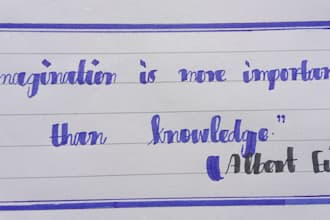 magination is more importan
than knowledge."
Albert Ei